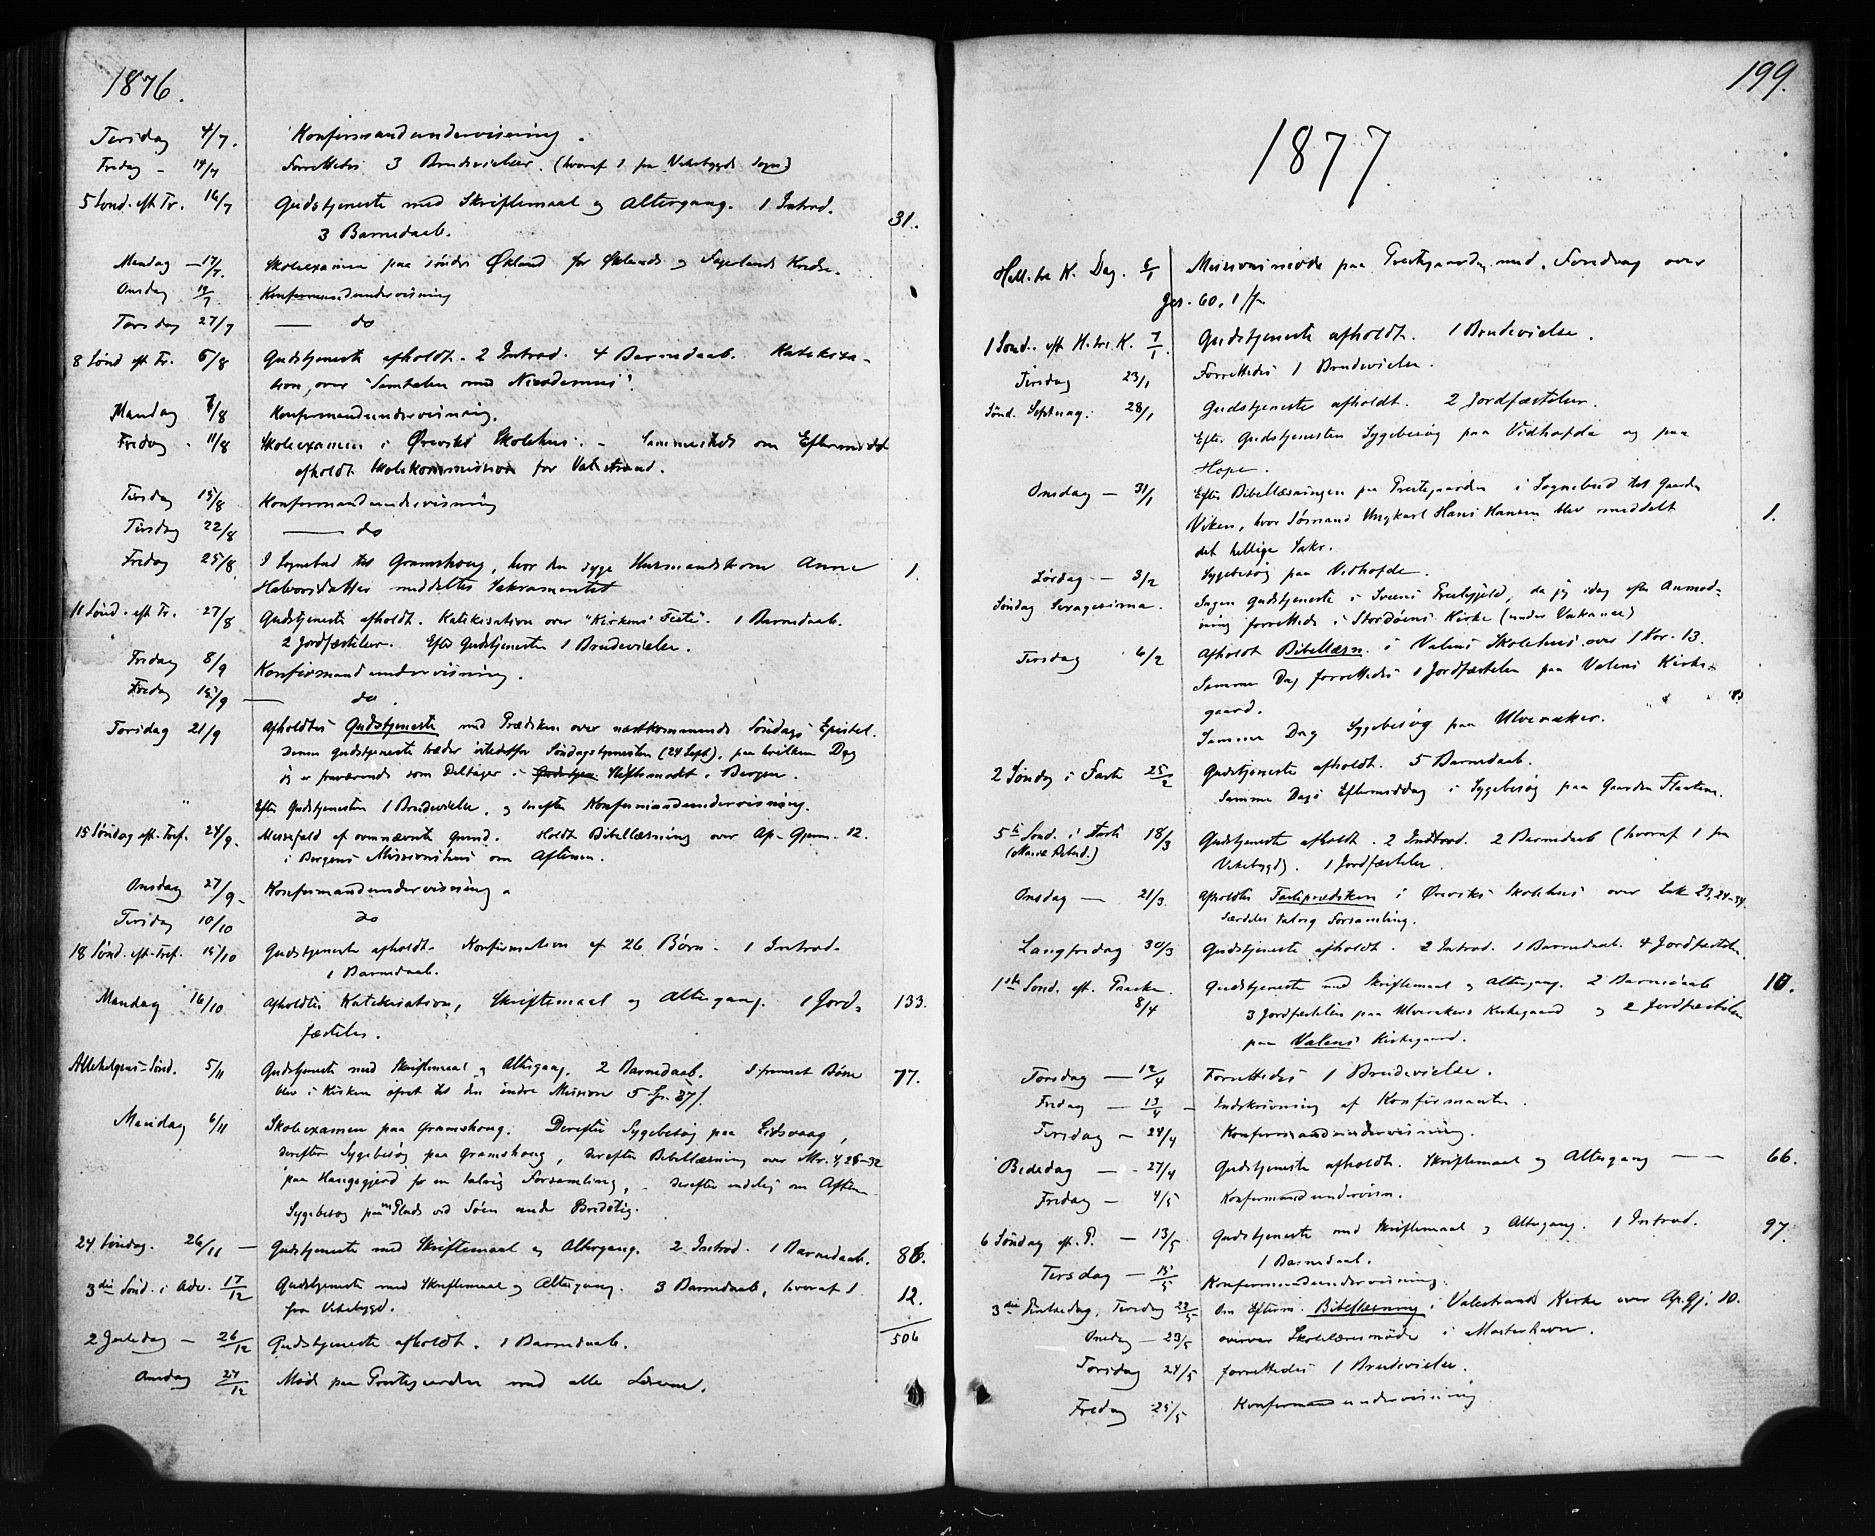 1876.
Tirsdag 4/7. Konfirmandundervisning.
Fredag - 14/7 Forrettedes 3 Brudevielser. (hvoraf 1 fra Vikebygds Sogn)
5 Sønd. eft. Tr. 16/7 Gudstjeneste med Skriftemaal og Altergang. 1 Introd. 31.
3 Barnedaab.
Mandag - 17/7. Skoleexamen paa søndre Økland for Øklands og Kredse.
Onsdag 19/7 Konfirmandundervisning
Torsdag 27/7 — do
8 Sønd eft Tr. 6/8 Gudstjeneste afholdt. 2 Introd. 4 Barnedaab. Katekisa-
tion over "Samtalen med Nicodemus".
Mandag 7/8 Konfirmandundervisning.
Fredag - 11/8 Skoleexamen i Øreviks Skolehus. - Sammesteds om Eftermidd
afholdt Skolekommission for Valestrand.
Tirsdag 15/8 Konfirmandundervisning
Tirsdag 22/8 — do
Fredag 25/8. I Sognebud til Gramshoug, hvor den syge Husmandskone Anne 1.
Halvorsdatter meddeltes Sakramentet
11 Sønd. eft Tr. 27/8 Gudstjeneste afholdt. Katekisation over "Kirkens Feste". 1 Barnedaab.
2 Jordfæstelser. Efter Gudstjenesten 1 Brudevielse.
Fredag 8/9 Konfirmandundervisning.
Fredag 15/9 — do.
Torsdag 21/9 Afholdtes Gudstjeneste med Prædiken over næstkommende Søndags Epistel.
Denne Gudstjeneste træder istedetfor Søndagstjenesten (24 Sept), paa hvilken Dag
jeg er fraværende som Deltager i Stiftsmødet i Bergen.
Efter Gudstjenesten 1 Brudevielse, og derefter Konfirmandundervisning.
15 Søndag eft. Tref. 24/9. Messefald af ovennævnte Grund. Holdt Bibellæsning over Ap. Gjern. 12.
i Bergens Missionshus om Aftenen.
Onsdag 27/9 - Konfirmandundervisning.
Tirsdag 10/10 do
18 Sønd. eft. Tref. 15/10 Gudstjeneste afholdt. Konfirmation af 26 Børn. 1 Introd.
1 Barnedaab.
Mandag 16/10 Afholdtes Katekisation, Skriftemaal og Altergang. 1 Jord- 133.
fæstelse.
Allehelgens-Sønd. 5/11 Gudstjeneste med Skriftemaal og Altergang. 2 Barnedaab. 77.
blev i Kirken ofret til den indre Mission 5
Mandag 6/11 Skoleexamen paa Gramshoug. Derefter Sygebesøg paa Eidsvaag,
derefter Sygebesøg paa Gramshoug, derefter Bibellæsning over Mr. 4, 26-32
paa Haugsgjerd for en talrig Forsamling, derefter endelig om Aften
Sygebesøg paa en Plads ved Søen
24 Søndag. 26/11 — Gudstjeneste med Skriftemaal og Altergang. 2 Introd. 1 Barnedaab. 86.
3die Sønd. i Adv. 17/12 Gudstjeneste med Skriftemaal og Altergang. 3 Barnedaab, hvoraf 1 12.
fra Vikebygd.
506
2 Juledag - 26/12 Gudstjeneste afholdt. 1 Barnedaab.
Onsdag 27/12 Møde paa Prestegaarden med alle Lærerne.
199.
1877.
Hell. tre K. Dag. 6/1 Missionsmøde paa Prestgaarden med Foredrag over
Jes. 60, 1 ff.
1 Sønd. eft H. tre K. 7/1. Gudstjeneste afholdt. 1 Brudevielse.
Tirsdag 23/1 Forrettedes 1 Brudevielse.
Sønd. Septuag. 28/1 Gudstjeneste afholdt. 2 Jordfæstelser.
Efter Gudstjenesten Sygebesøg paa Vidhofde og paa
Hope.
Onsdag - 31/1 Efter Bibellæsningen paa Prestegaarden i Sognebud til Gaarden 1.
Viken, hvor Sømand Ungkarl Hans Hansen blev meddelt
det hellige Sakr.
Lørdag - 3/2 Sygebesøg paa Vidhofde.
Søndag Sexagesima. Ingen Gudstjeneste i Sveens Prestegjeld, da jeg idag efter Anmod-
ning forrettede i Stordøens Kirke (under Vakance)
Tirsdag 6/2 Afholdt Bibellæsn. i Valens Skolehus over 1 Kor. 13.
Samme Dag forrettedes 1 Jordfæstelse paa Valens Kirke-
gaard.
Samme Dag Sygebesøg paa Ulveraker.
2 Søndag i Faste 25/2 Gudstjeneste afholdt. 5 Barnedaab.
Samme Dags Eftermiddag i Sygebesøg paa Gaarden
5te Sønd. i Faste 18/3 Gudstjeneste afholdt. 2 Introd. 2 Barnedaab (hvoraf 1 fra
(Mariæ Bebud.) Vikebygd). 1 Jordfæstelse.
Onsdag — 21/3 Afholdtes Fasteprædiken i Øreviks Skolehus over Luk 23,
Særdeles talrig Forsamling.
Langfredag 30/3 Gudstjeneste afholdt. 2 Introd. 1 Barnedaab. 4 Jordfæstelser
1ste Sønd. eft. Paaske. Gudstjeneste med Skriftemaal og Altergang. 2 Barnedaab 10.
8/4 3 Jordfæstelser paa Ulverakers Kirkegaard og 2 Jordfæstelser
paa Valens Kirkegaard.
Torsdag — 12/4 Forrettedes 1 Brudevielse.
Fredag — 13/4 - Indskrivning af Konfirmanter.
Tirsdag - 24/4 Konfirmandundervisning.
Bededag — 27/4 Gudstjeneste afholdt. Skriftemaal og Altergang — — 66.
Fredag — 4/5 Konfirmandundervisn.
6 Søndag eft. P. — 13/5 Gudstjeneste med Skriftemaal og Altergang. 1 Introd. 97.
1 Barnedaab.
Tirsdag — 15/5 Konfirmandundervisning.
3die Pintsedag, Tirsdag 22/5 Om Efterm. Bibellæsning i Valestrands Kirke over Ap. Gj. 10.
Onsdag — 23/5 overvar Skolelærermøde i Mosterhavn.
Torsdag 24/5 forrettedes 1 Brudevielse.
Fredag 25/5 Konfirmandundervisning